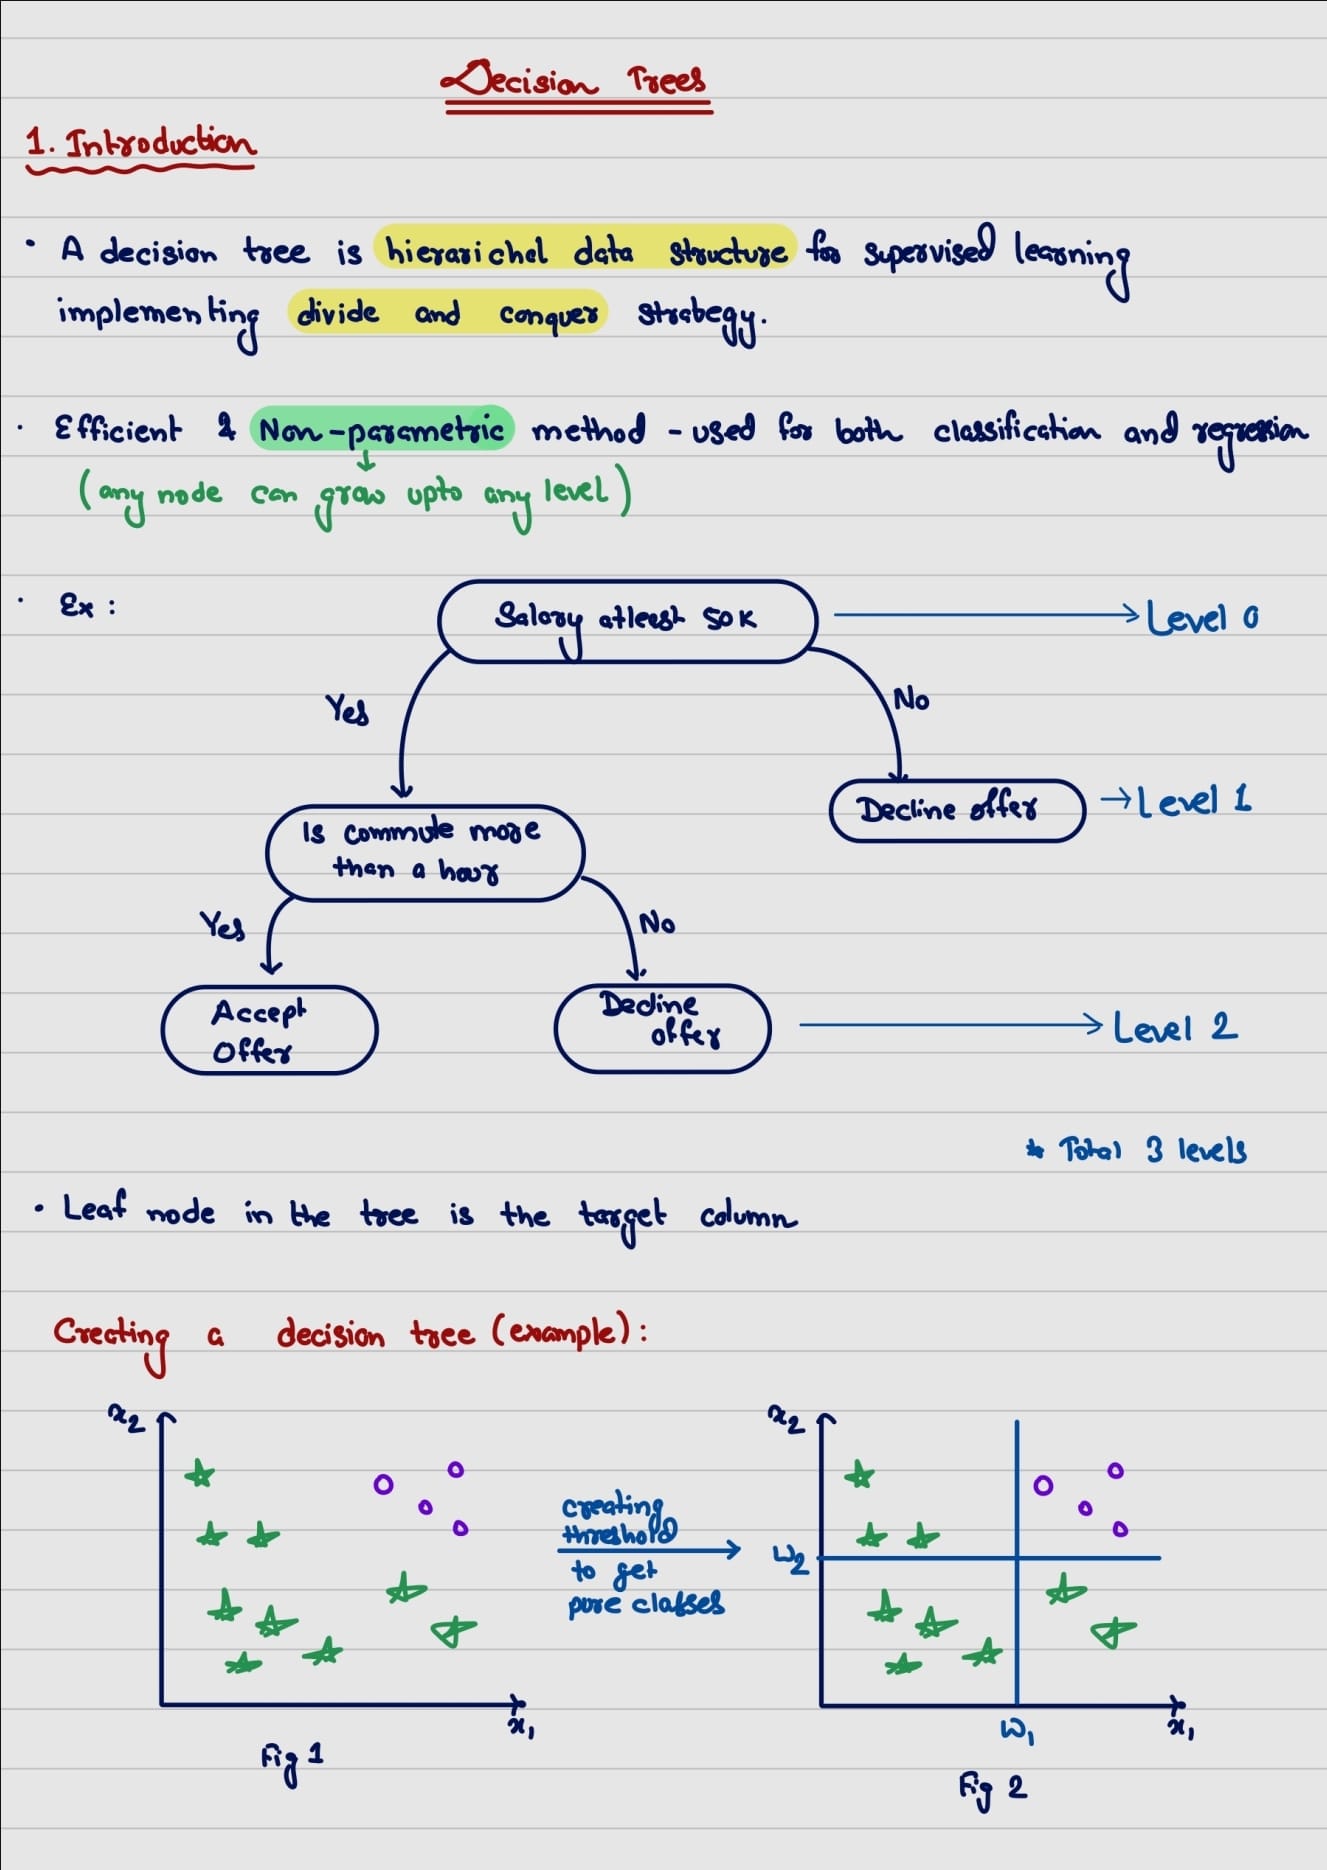 Decision Trees
1. Introduction
• A decision tree is hierarichal data structure for supervised learning
implementing divide and conquer strategy.
• Efficient & Non-parametric method - used for both classification and regression
(any node can grow upto any level)
• Ex :
Salary atleast 50K
Level 0
Yes
No
Decline offer
Level 1
Is commute more
than a hour
Yes
No
Accept
Offer
Decline
offer
Level 2
* Total 3 levels
• Leaf node in the tree is the target column
Creating a decision tree (example) :
x2
x1
Fig 1
creating
threshold
to get
pure classes
x2
w2
w1
x1
Fig 2